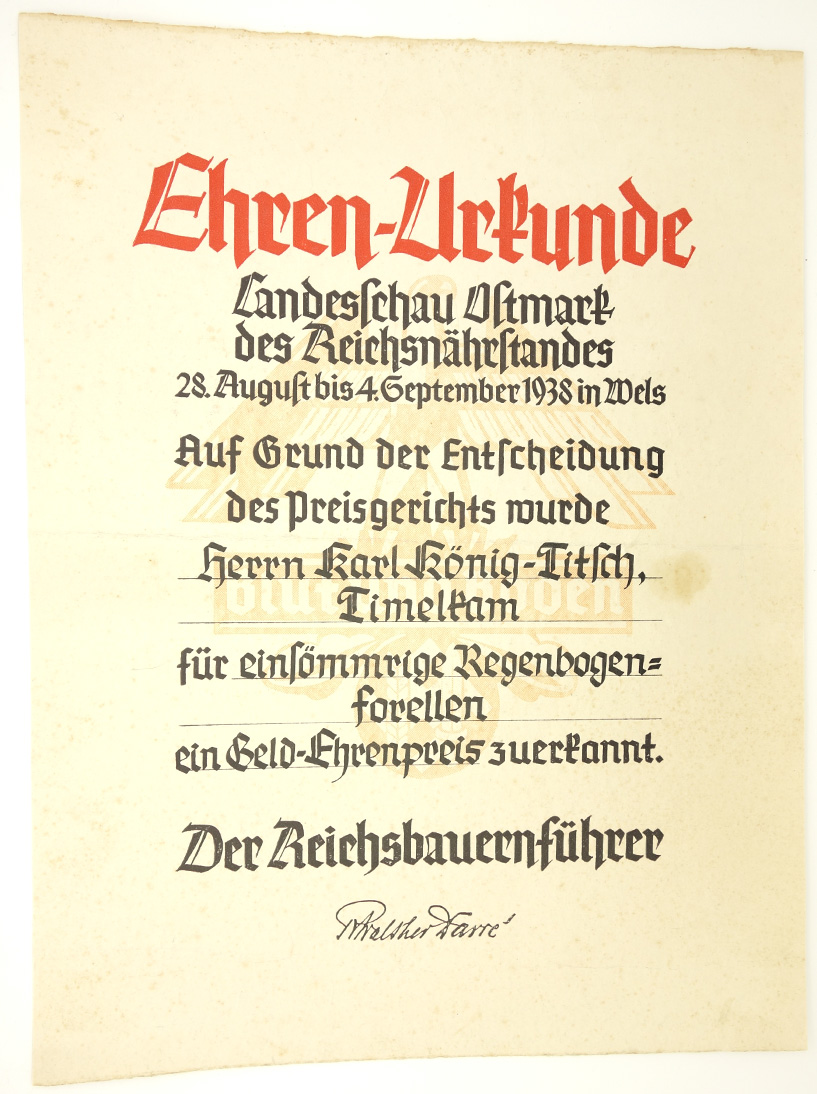 Ehren-Urkunde
Landesschau Ostmark
des Reichsnährstandes
28. August bis 4. September 1938 in Wels
Auf Grund der Entscheidung
des Preisgerichts wurde
Herrn Karl König-Titsch,
Timelkam
für einsömmrige Regenbogen=
forellen
ein Geld-Ehrenpreis zuerkannt.
Der Reichsbauernführer
RWalther Darré